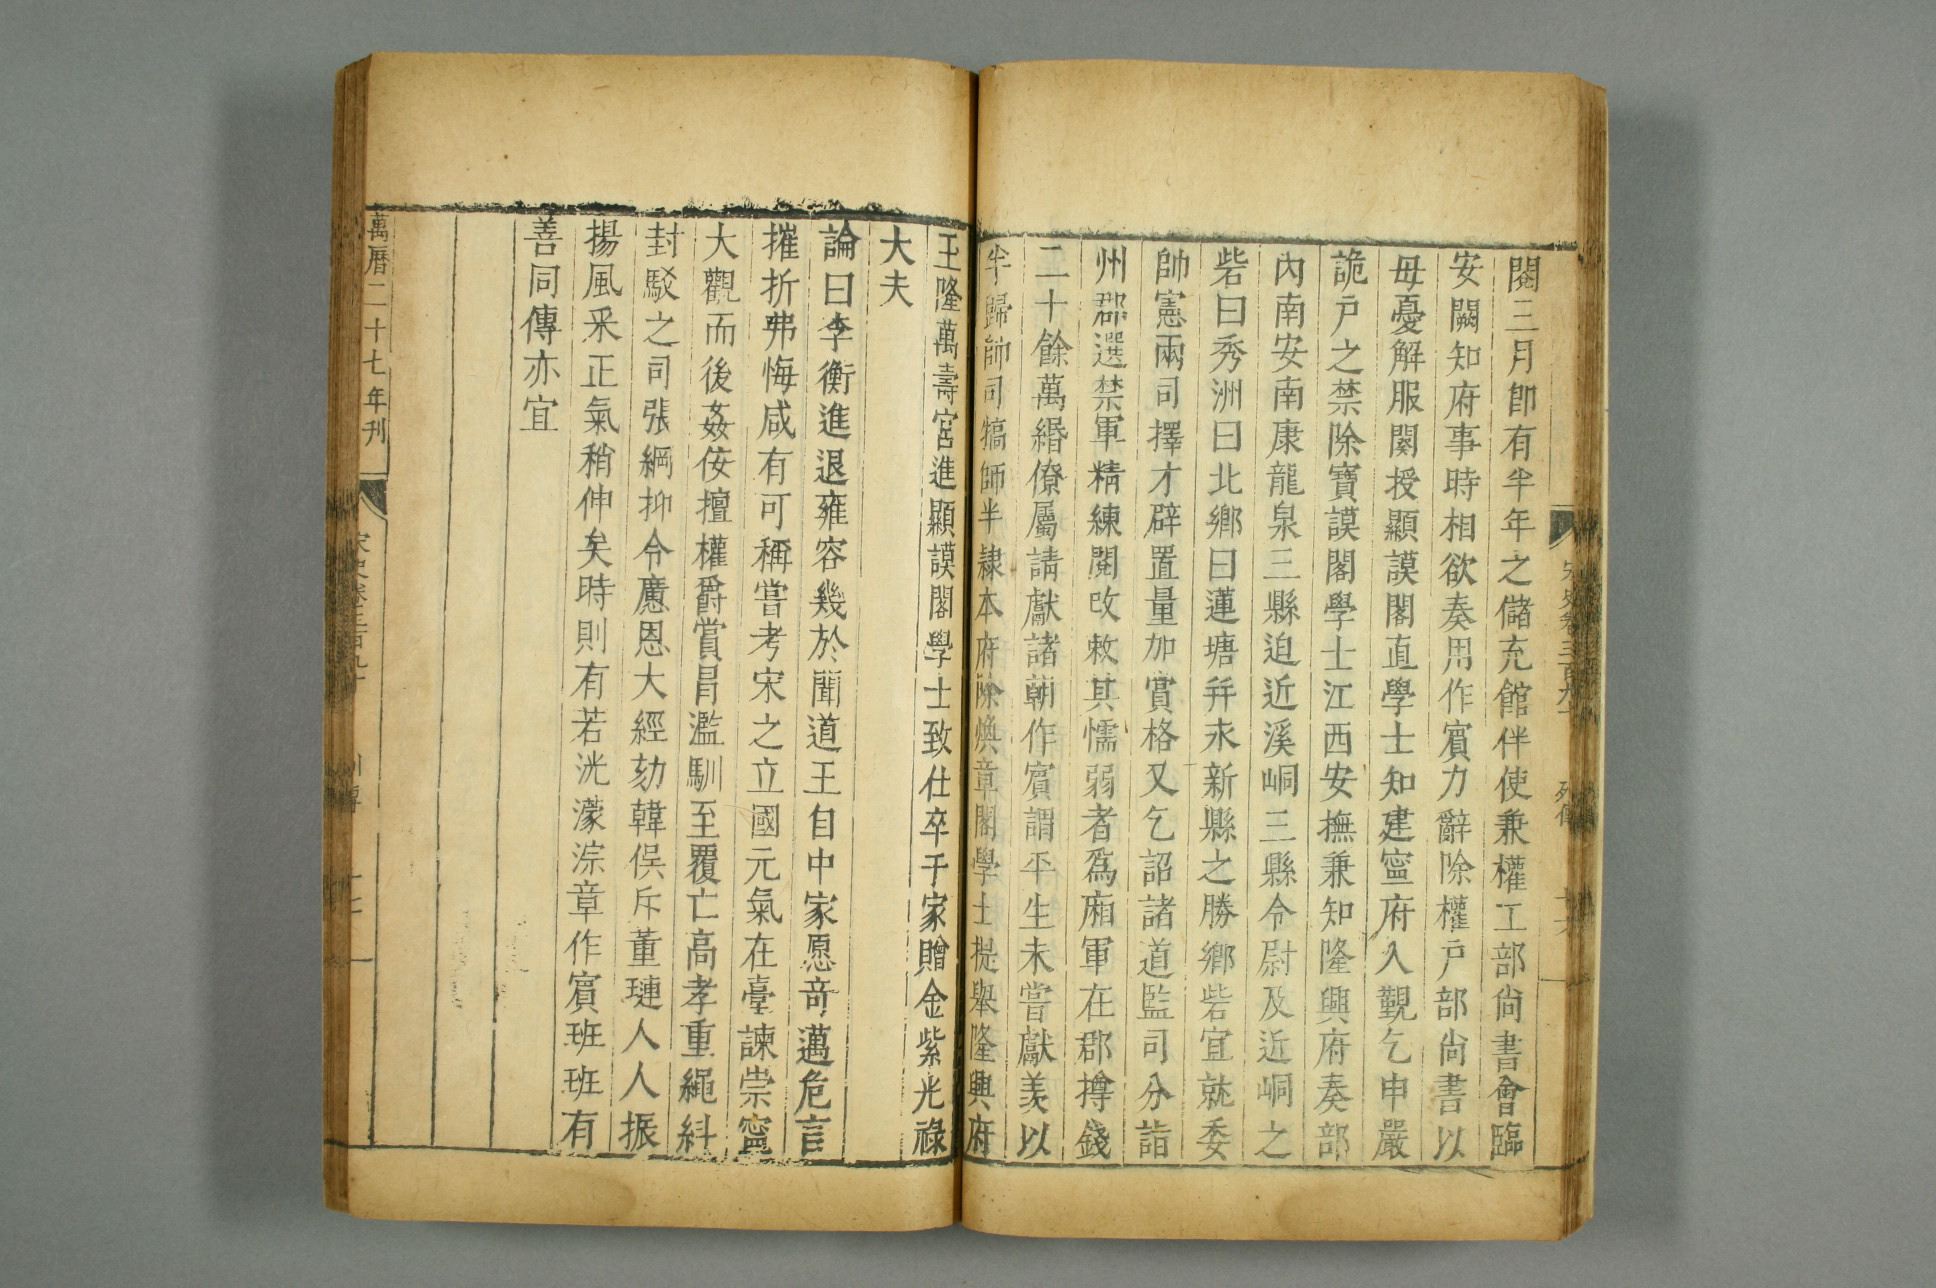 閱三月卽有半年之儲充館伴使兼權工部尚書會臨
安闕知府事時相欲奏用作賓力辭除權戶部尚書以
母憂解服闋授顯謨閣直學士知建寧府入覲乞申嚴
詭戶之禁除寶謨閣學士江西安撫兼知隆興府奏部
內南安南康龍泉三縣迫近溪峒三縣令尉及近峒之
砦曰秀洲曰北鄉曰蓮塘幷永新縣之勝鄉砦宜就委
帥憲兩司擇才辟置量加賞格又乞詔諸道監司分詣
州郡選禁軍精練閱改敕其懦弱者爲廂軍在郡撙錢
二十餘萬緡僚屬請獻諸朝作賓謂平生未嘗獻羨以
半歸帥司犒師半隸本府除煥章閣學士提舉隆興府
玉隆萬壽宮進顯謨閣學士致仕卒于家贈金紫光祿
大夫
論曰李衡進退雍容幾於聞道王自中家愿奇邁危言
摧折弗悔咸有可稱嘗考宋之立國元氣在臺諫崇寧
大觀而後姦佞擅權爵賞冒濫馴至覆亡高孝重繩糾
封駁之司張綱抑令譍恩大經劾韓俁斥董璉人人振
揚風采正氣稍伸矣時則有若洸濛淙章作賓班班有
善同傳亦宜
萬曆二十七年刊
宋史卷三百九十
列傳
十七
宋史卷三百九十
列傳
十六